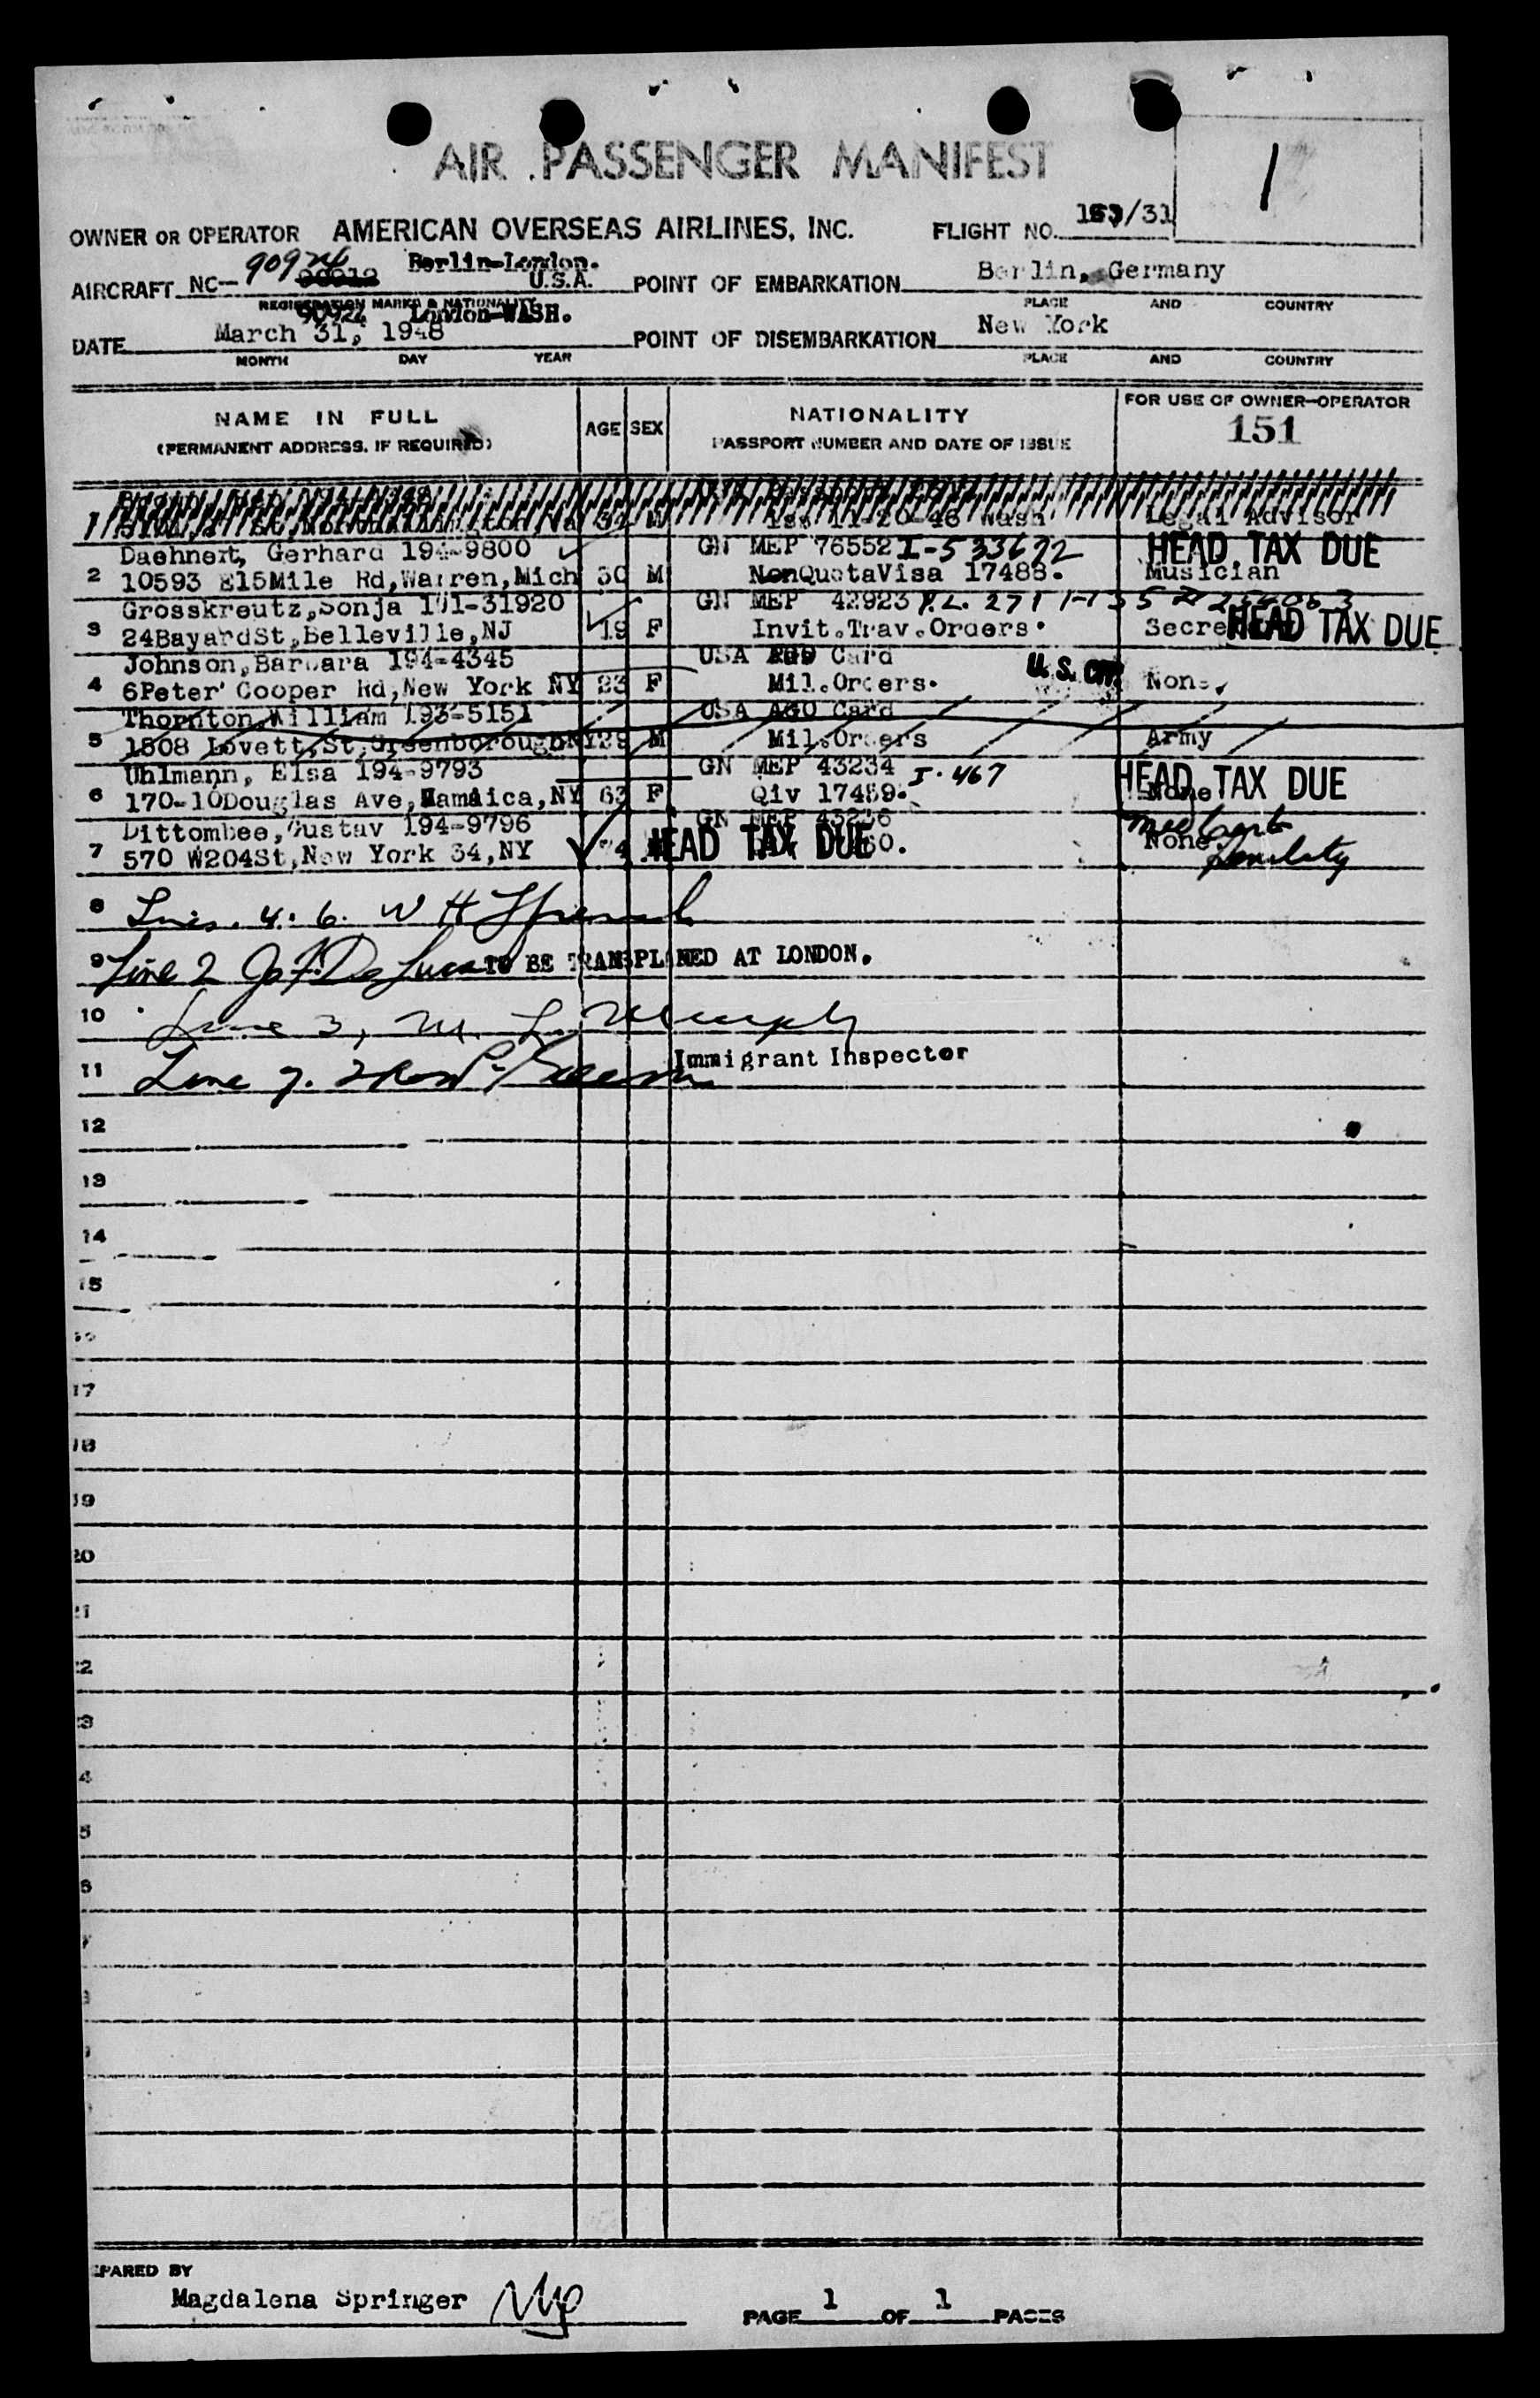 AIR PASSENGER MANIFEST
1
OWNER OR OPERATOR AMERICAN OVERSEAS AIRLINES, INC. FLIGHT NO. /31
AIRCRAFT NC-90924 90912 Berlin-London. U.S.A. POINT OF EMBARKATION Berlin, Germany
REGISTRATION MARKS & NATIONALITY PLACE AND COUNTRY
90924 London-WASH.
DATE March 31, 1948 POINT OF DISEMBARKATION New York
MONTH DAY YEAR PLACE AND COUNTRY
NAME IN FULL AGE SEX NATIONALITY FOR USE OF OWNER-OPERATOR
(PERMANENT ADDRESS, IF REQUIRED) PASSPORT NUMBER AND DATE OF ISSUE 151
1 34 M Iss 11-20-46 Wash Legal Advisor
Daehnert, Gerhard 194-9800 GN MEP 76552 I-533672 HEAD TAX DUE
2 10593 E15Mile Rd,Warren,Mich 30 M NonQuotaVisa 17488. Musician
Grosskreutz,Sonja 101-31920 GN MEP 42923 P.L. 271
3 24BayardSt,Belleville,NJ 19 F Invit.Trav.Orders. HEAD TAX DUE
Johnson,Barbara 194-4345 USA Card U.S. CIT.
4 6Peter Cooper Rd,New York NY 23 F Mil.Orders. None.
Thornton,William 193-5151 USA AGO Card
5 1808 Lovett,St,Greenborough 29 M Mil.Orders Army
Uhlmann, Elsa 194-9793 GN MEP 43234 I-467 HEAD TAX DUE
6 170-10Douglas Ave,Jamaica,NY 63 F Qiv 17459. None
Dittombee,Gustav 194-9796 GN MEP 43236 Med Cert
7 570 W204St,New York 34,NY HEAD TAX DUE None. Senility
8 Lines. 4. 6. W H
9 Line 2 TO BE TRANSPLANED AT LONDON.
10 Line 3, M. L. Murphy
Immigrant Inspector
11 Line 7.
12
13
14
15
17
18
19
20
PARED BY
Magdalena Springer
PAGE 1 OF 1 PAGES